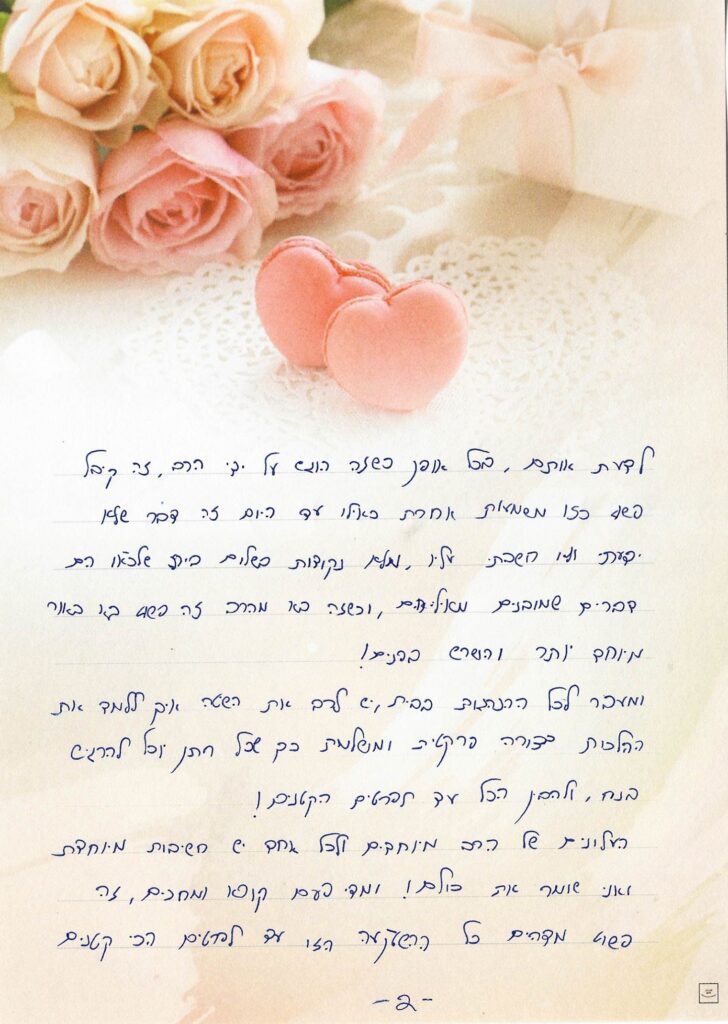 לדעת אותם, בכל אופן כשזה הוגש על ידי הרב, זה קיבל
פשוט כזו משמעות אחרת כאילו עד היום זה דבר שלא
ידעתי ולא חשבתי עליו, ומלא נקודות בשלום בית שלכאו' הם
דברים שמובנים מאליהם, וכשזה בא מהרב זה פשוט בא באור
מיוחד יותר והושרש בפנים!
ומעבר לכל ההנהגות בבית, יש לרב את השיטה איך ללמד את
ההלכות בצורה פרקטית ומושלמת כך שכל חתן יוכל להרגיש
בנח, ולהבין הכל עד לפרטים הקטנים!
העלונים של הרב מיוחדים ולכל אחד יש חשיבות מיוחדת
ואני שומר את כולם! ומדי פעם קורא ומחכים, זה
פשוט מדהים כל ההשקעה הזו עד לפרטים הכי קטנים
-2-